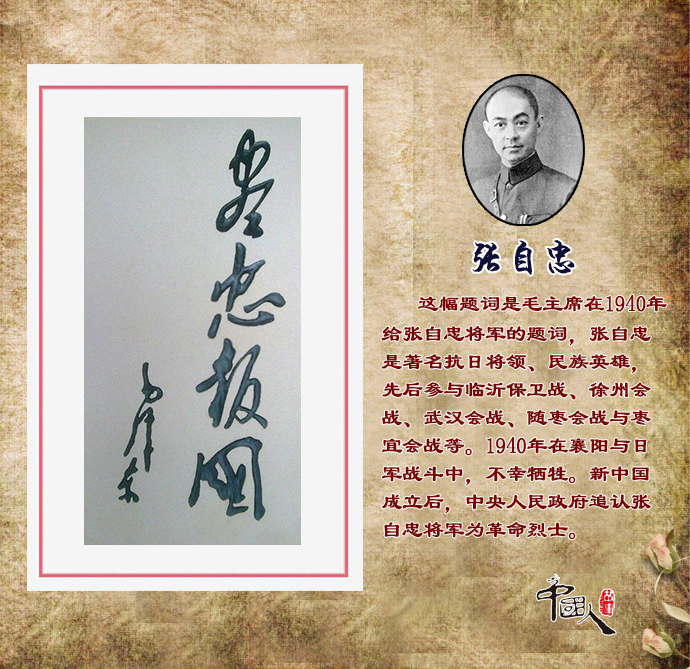 尽忠报国
毛泽东
张自忠
这幅题词是毛主席在1940年
给张自忠将军的题词，张自忠
是著名抗日将领、民族英雄，
先后参与临沂保卫战、徐州会
战、武汉会战、随枣会战与枣
宜会战等。1940年在襄阳与日
军战斗中，不幸牺牲。新中国
成立后，中央人民政府追认张
自忠将军为革命烈士。
中國人